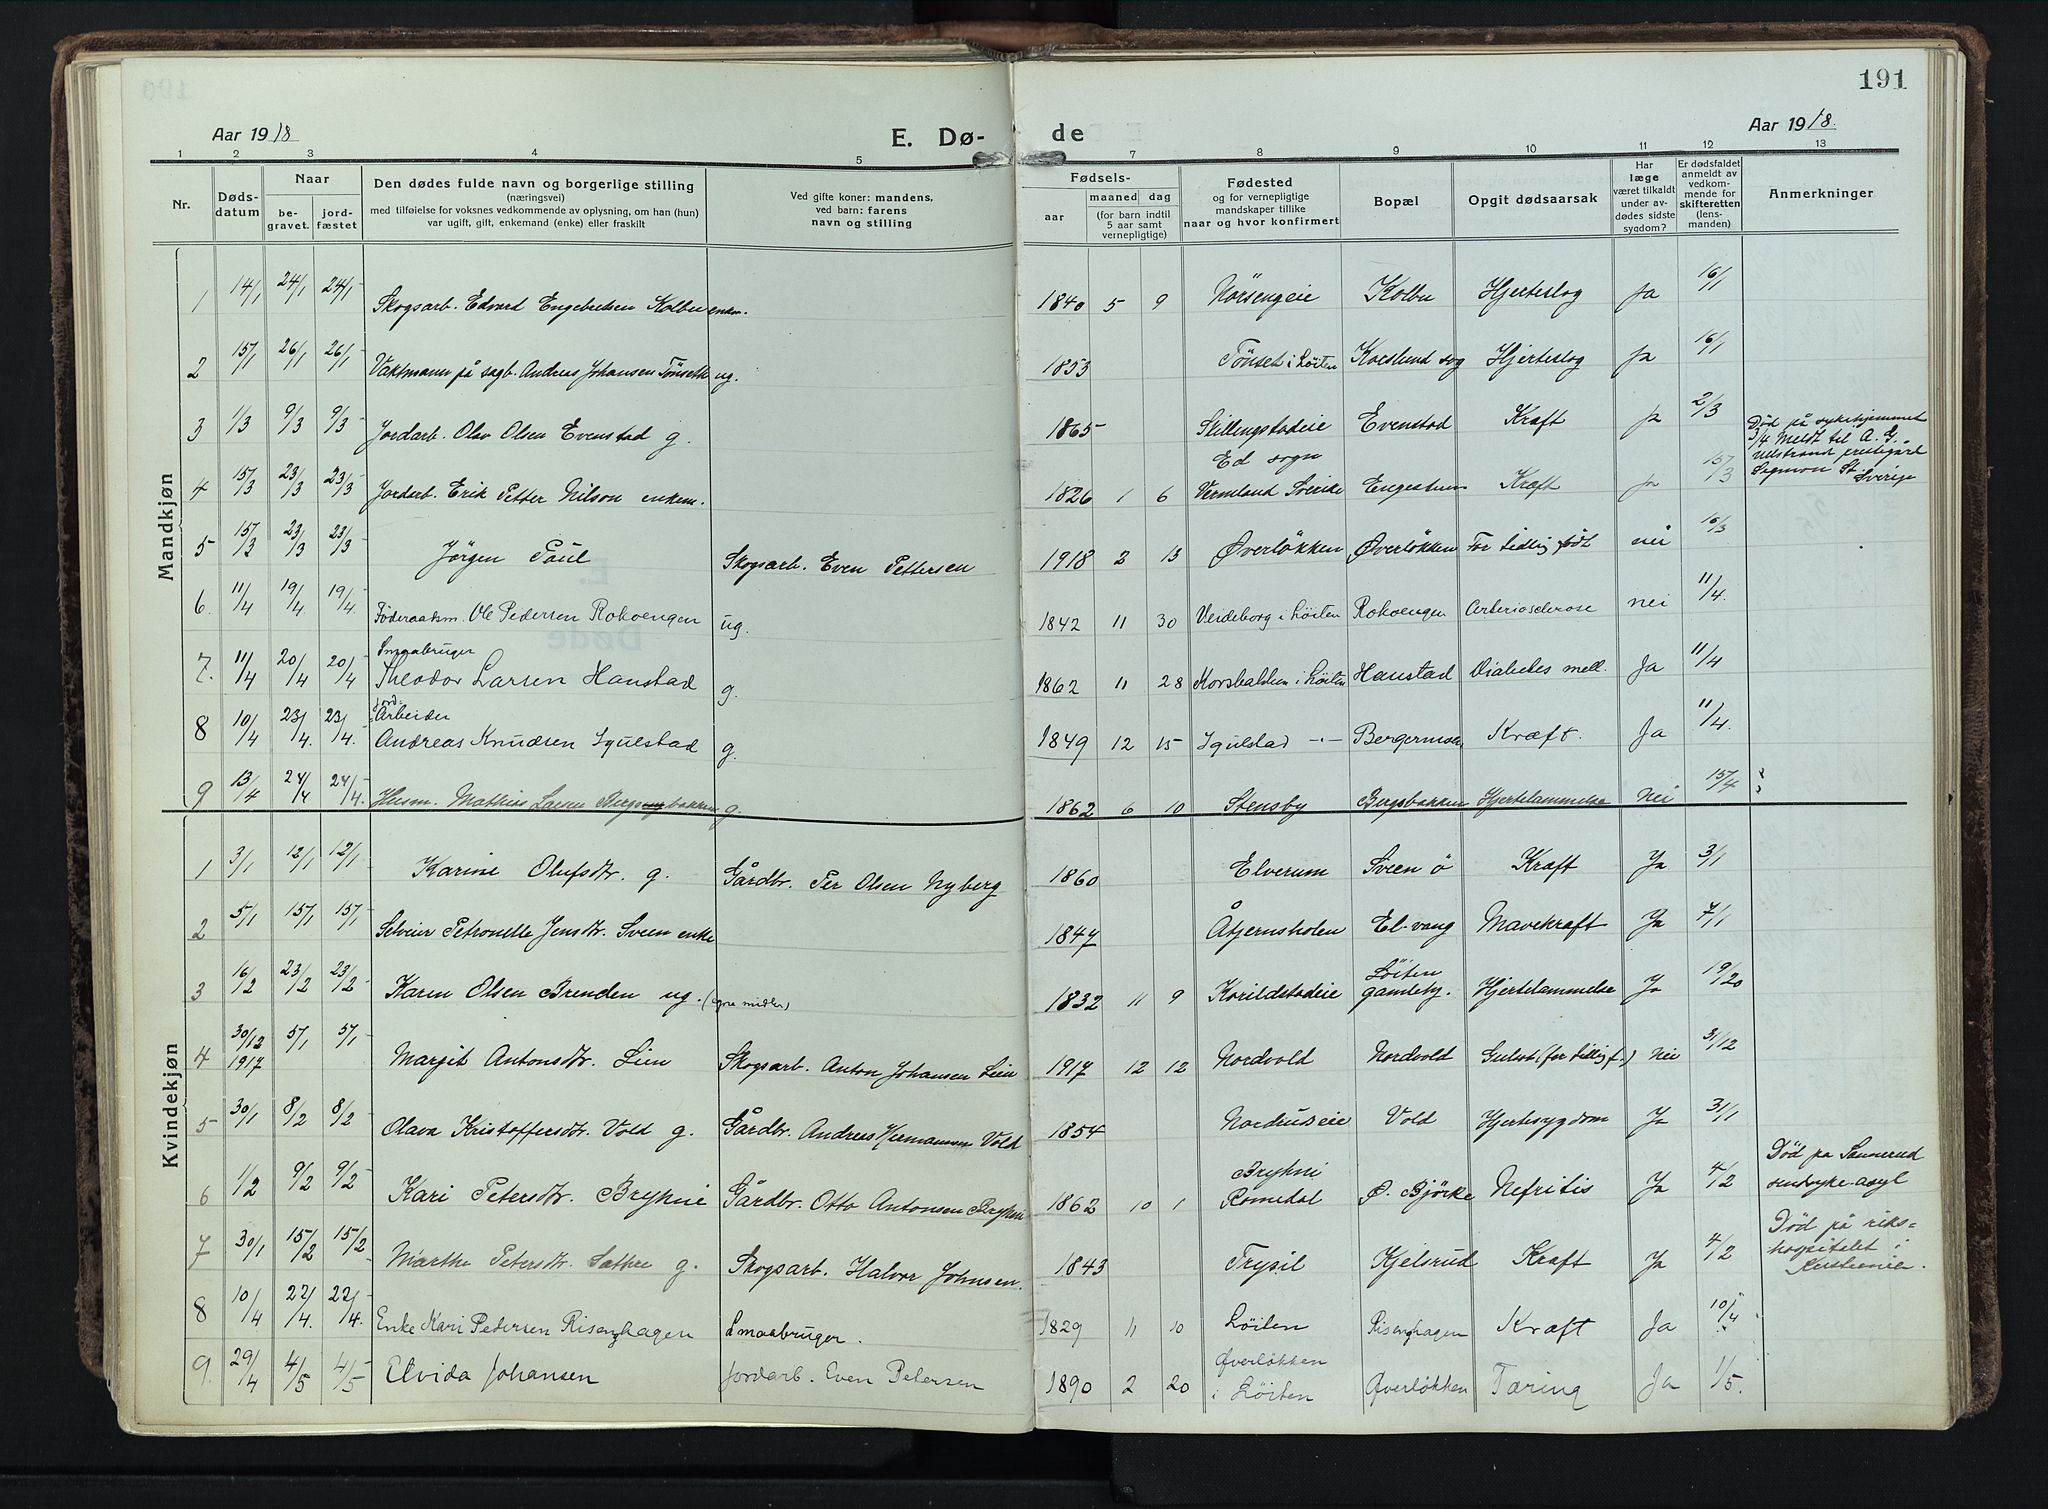 191
Aar 1918
E. Dø-
de
Aar 1918.
1 2 3 4 5 7 8 9 10 11 12 13
Nr.
Døds-
datum
Naar
be-
gravet.
jord-
fæstet
Den dødes fulde navn og borgerlige stilling
(næringsvei)
med tilføielse for voksnes vedkommende av oplysning, om han (hun)
var ugift, gift, enkemand (enke) eller fraskilt
Ved gifte koner: mandens,
ved barn: farens
navn og stilling
Fødsels-
aar
maaned dag
(for barn indtil
5 aar samt
vernepligtige)
Fødested
og for vernepligtige
mandskaper tillike
naar og hvor konfirmert
Bopæl
Opgit dødsaarsak
Har
læge
været tilkaldt
under av-
dødes sidste
sygdom?
Er dødsfaldet
anmeldt av
vedkom-
mende for
skifteretten
(lens-
manden)
Anmerkninger
Mandkjøn
1 14/1 24/1 24/1 Skogsarb. Edvard Engebretsen Kolbu enkm. 1840 5 9 Norsengeie Kolbu Hjerteslag Ja 16/1
2 15/1 26/1 26/1 Vaktmann på sagb. Andreas Johansen Tönseth ug. 1853 Tönset i Löiten Korslund sag Hjerteslag Ja 16/1
3 1/3 9/3 9/3 Jordarb. Olav Olsen Evenstad g. 1865 Skillingstadeie Evenstad Kræft Ja 2/3 Död på sykehjemmet
4 15/3 23/3 23/3 Jordarb. Erik Petter Nilson enkem. 1826 1 6 Ed sogn
Vermland Sverike Kræft Ja 15/3 3/4 Meldt til A. G.
Sverige
5 15/3 23/3 23/3 Jörgen Paul Skogsarb. Even Pettersen 1918 2 13 Øverløkken Øverløkken For tidlig født nei 16/3
6. 11/4 19/4 19/4. Föderaadsm. Ole Pedersen Rokoengen ug. 1842 11 30 Veideborg i Löiten Rokoengen Arteriosclerose nei 11/4.
7. 11/4 20/4 20/4 Smaabruger
Theodor Larsen Hanstad g. 1862 11 28 Korsbakken i Löiten Hanstad Diabetes mell. Ja 11/4
8 10/4 23/4. 23/4. Jord.
Arbeider
Andreas Knudsen Igulstad g. 1849 12 15 Igulstad -"- Kræft. Ja 11/4.
9 13/4 24/4 24/4. Husm. Mathias Larsen Bergsbakken g. 1862 6 10 Stensby Bergsbakken Hjertelammelse Nei 15/4
Kvindekjøn
1 3/1 12/1 12/1 Karine Olufsdtr. g. Gårdbr. Per Olsen Nyberg 1860 Elverum Sveen ö Kræft Ja 3/1
2 5/1 15/1 15/1 Petronelle Jensdtr. Sveen enke 1847 Åtjernsholen El-vang Mavekræft Ja 7/1
3 16/2 23/2 23/2 Karen Olsen Brenden ug. (egne midler) 1832 11 9 Korildstadeie Löiten
gamleby. Hjertelammelse Ja 19/20
4 30/12 1917 5/1 5/1 Margit Antonsdtr. Lien Skogsarb. Anton Johansen Lien 1917 12 12 Nordvold Nordvold Gulsot (for tidlig f.) Nei 31/12
5 30/1 8/2 8/2 Olava Kristoffersdtr. Vold g. Gårdbr. Andreas Hermansen Vold 1854 Nordrudseie Vold Hjertesygdom Ja 31/1
6 1/2 9/2 9/2 Kari Petersdtr. Brykni Gårdbr. Otto Antonsen Brykni 1862 10 1 Brykni
Romedal Ö. Björke Nefritis Ja 4/2 Död på Sannerud
sindsyke-asyl
7 30/1 15/2 15/2 Marthe Petersdtr. Sæthre g. Skogsarb. Halvor Johnsen 1843 Trysil Kjelsrud Kræft Ja 4/2 Död på riks-
hospitalet i
Kristiania.
8 10/4 22/4. 22/4. Enke Kari Petersen Risenghagen Smaabruger. 1829 11 10 Löiten Risenghagen Kræft Ja 10/4
9. 29/4 4/5 4/5 Elvida Johansen Jordarb. Even Petersen 1890 2 20 Øverløkken
i Löiten Øverløkken Tæring Ja 1/5.